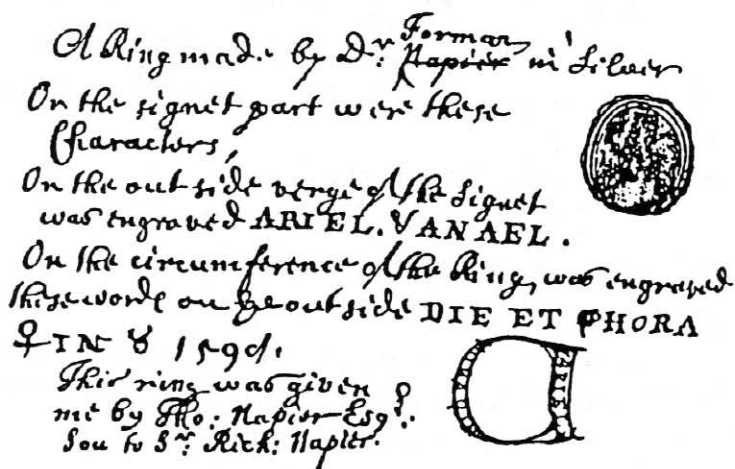 A Ring made by Dr: Forman Napier in Silver
On the signet part were these
Characters,
On the out side verge of the Signet
was engraved ARIEL. VANAEL.
On the circumference of the Ring, was engraved
these words on ye out side DIE ET PHORA
♀ IN ♉
This ring was given
me by Tho: Napier Esqr.
Son to Sr: Rich: Napier.